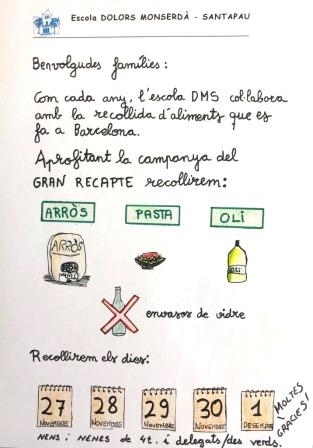 Escola DOLORS MONSERDÀ - SANTAPAU
Benvolgudes famílies:
Com cada any, l'escola DMS col·labora
amb la recollida d'aliments que es
fa a Barcelona.
Aprofitant la campanya del
GRAN RECAPTE recollirem:
ARRÒS PASTA OLI
ARRÒS
OLI
envasos de vidre
Recollirem els dies:
27 28 29 30 1
NOVEMBRE NOVEMBRE NOVEMBRE NOVEMBRE DESEMBRE
MOLTES
GRÀCIES!
NENS i NENES de 4t. i delegats/des verds.